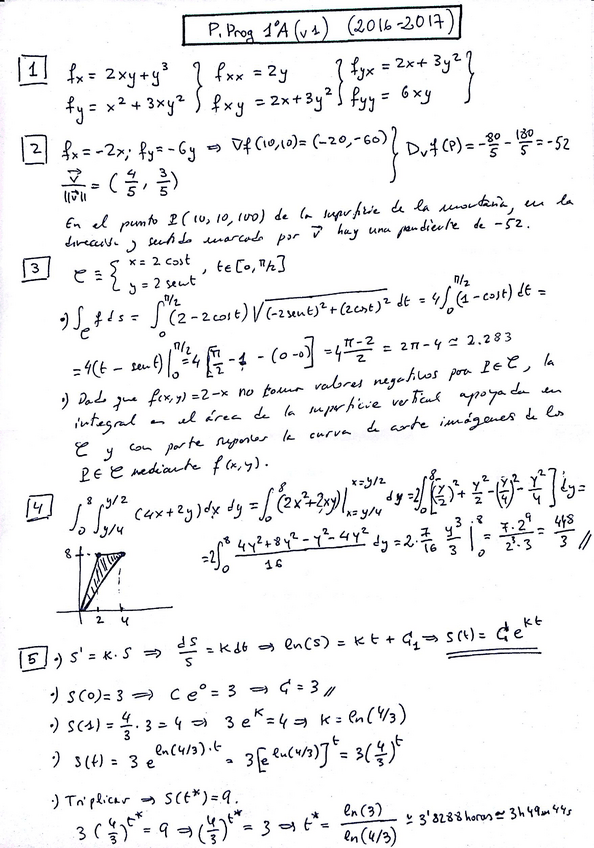 P. Prog 1ºA (v1) (2016-2017)
1 fx = 2xy+y³ } fxx = 2y } fyx = 2x+3y² }
fy = x²+3xy² } fxy = 2x+3y² } fyy = 6xy }
2 fx=-2x; fy=-6y ⇒ ∇f(10,10)=(-20,-60) } Dvf(P)=-80/5-180/5=-52
v⃗/||v⃗|| = (4/5, 3/5)
En el punto P(10,10,100) de la superficie de la montaña, en la
dirección y sentido marcado por v⃗ hay una pendiente de -52.
3 C ≡ { x = 2cost
y = 2sent , t∈[0,π/2]
·) ∫_C f ds = ∫₀^{π/2} (2-2cost) √((-2sent)²+(2cost)²) dt = 4∫₀^{π/2} (1-cost) dt =
=4(t-sent)|₀^{π/2} =4[π/2-1-(0-0)] =4 (π-2)/2 = 2π-4 ≃ 2.283
·) Dado que f(x,y)=2-x no toma valores negativos para P∈C, la
integral es el área de la superficie vertical apoyada en
C y con parte superior la curva de corte imágenes de los
P∈C mediante f(x,y).
4 ∫₀⁸∫_{y/4}^{y/2} (4x+2y)dx dy = ∫₀⁸ (2x²+2xy)|_{x=y/4}^{x=y/2} dy =2∫₀⁸[(y/2)²+y²/2-(y/4)²-y²/4]dy=
=2∫₀⁸ (4y²+8y²-y²-4y²)/16 dy=2·7/16 y³/3|₀⁸ = 7·2⁹/2³·3 = 448/3 //
8
2 4
5 ·) S' = K·S ⇒ ds/S = Kdt ⇒ ln(S) = Kt + C₁ ⇒ S(t) = C e^{Kt}
·) S(0)=3 ⇒ C e⁰ = 3 ⇒ C = 3 //
·) S(1)=4/3·3=4 ⇒ 3e^K=4 ⇒ K=ln(4/3)
·) S(t) = 3 e^{ln(4/3)·t} = 3[e^{ln(4/3)}]^t = 3(4/3)^t
·) Triplicar ⇒ S(t*)=9.
3(4/3)^{t*} = 9 ⇒ (4/3)^{t*} = 3 ⇒ t* = ln(3)/ln(4/3) ≃ 3'8288 horas ≃ 3h 49m 44s